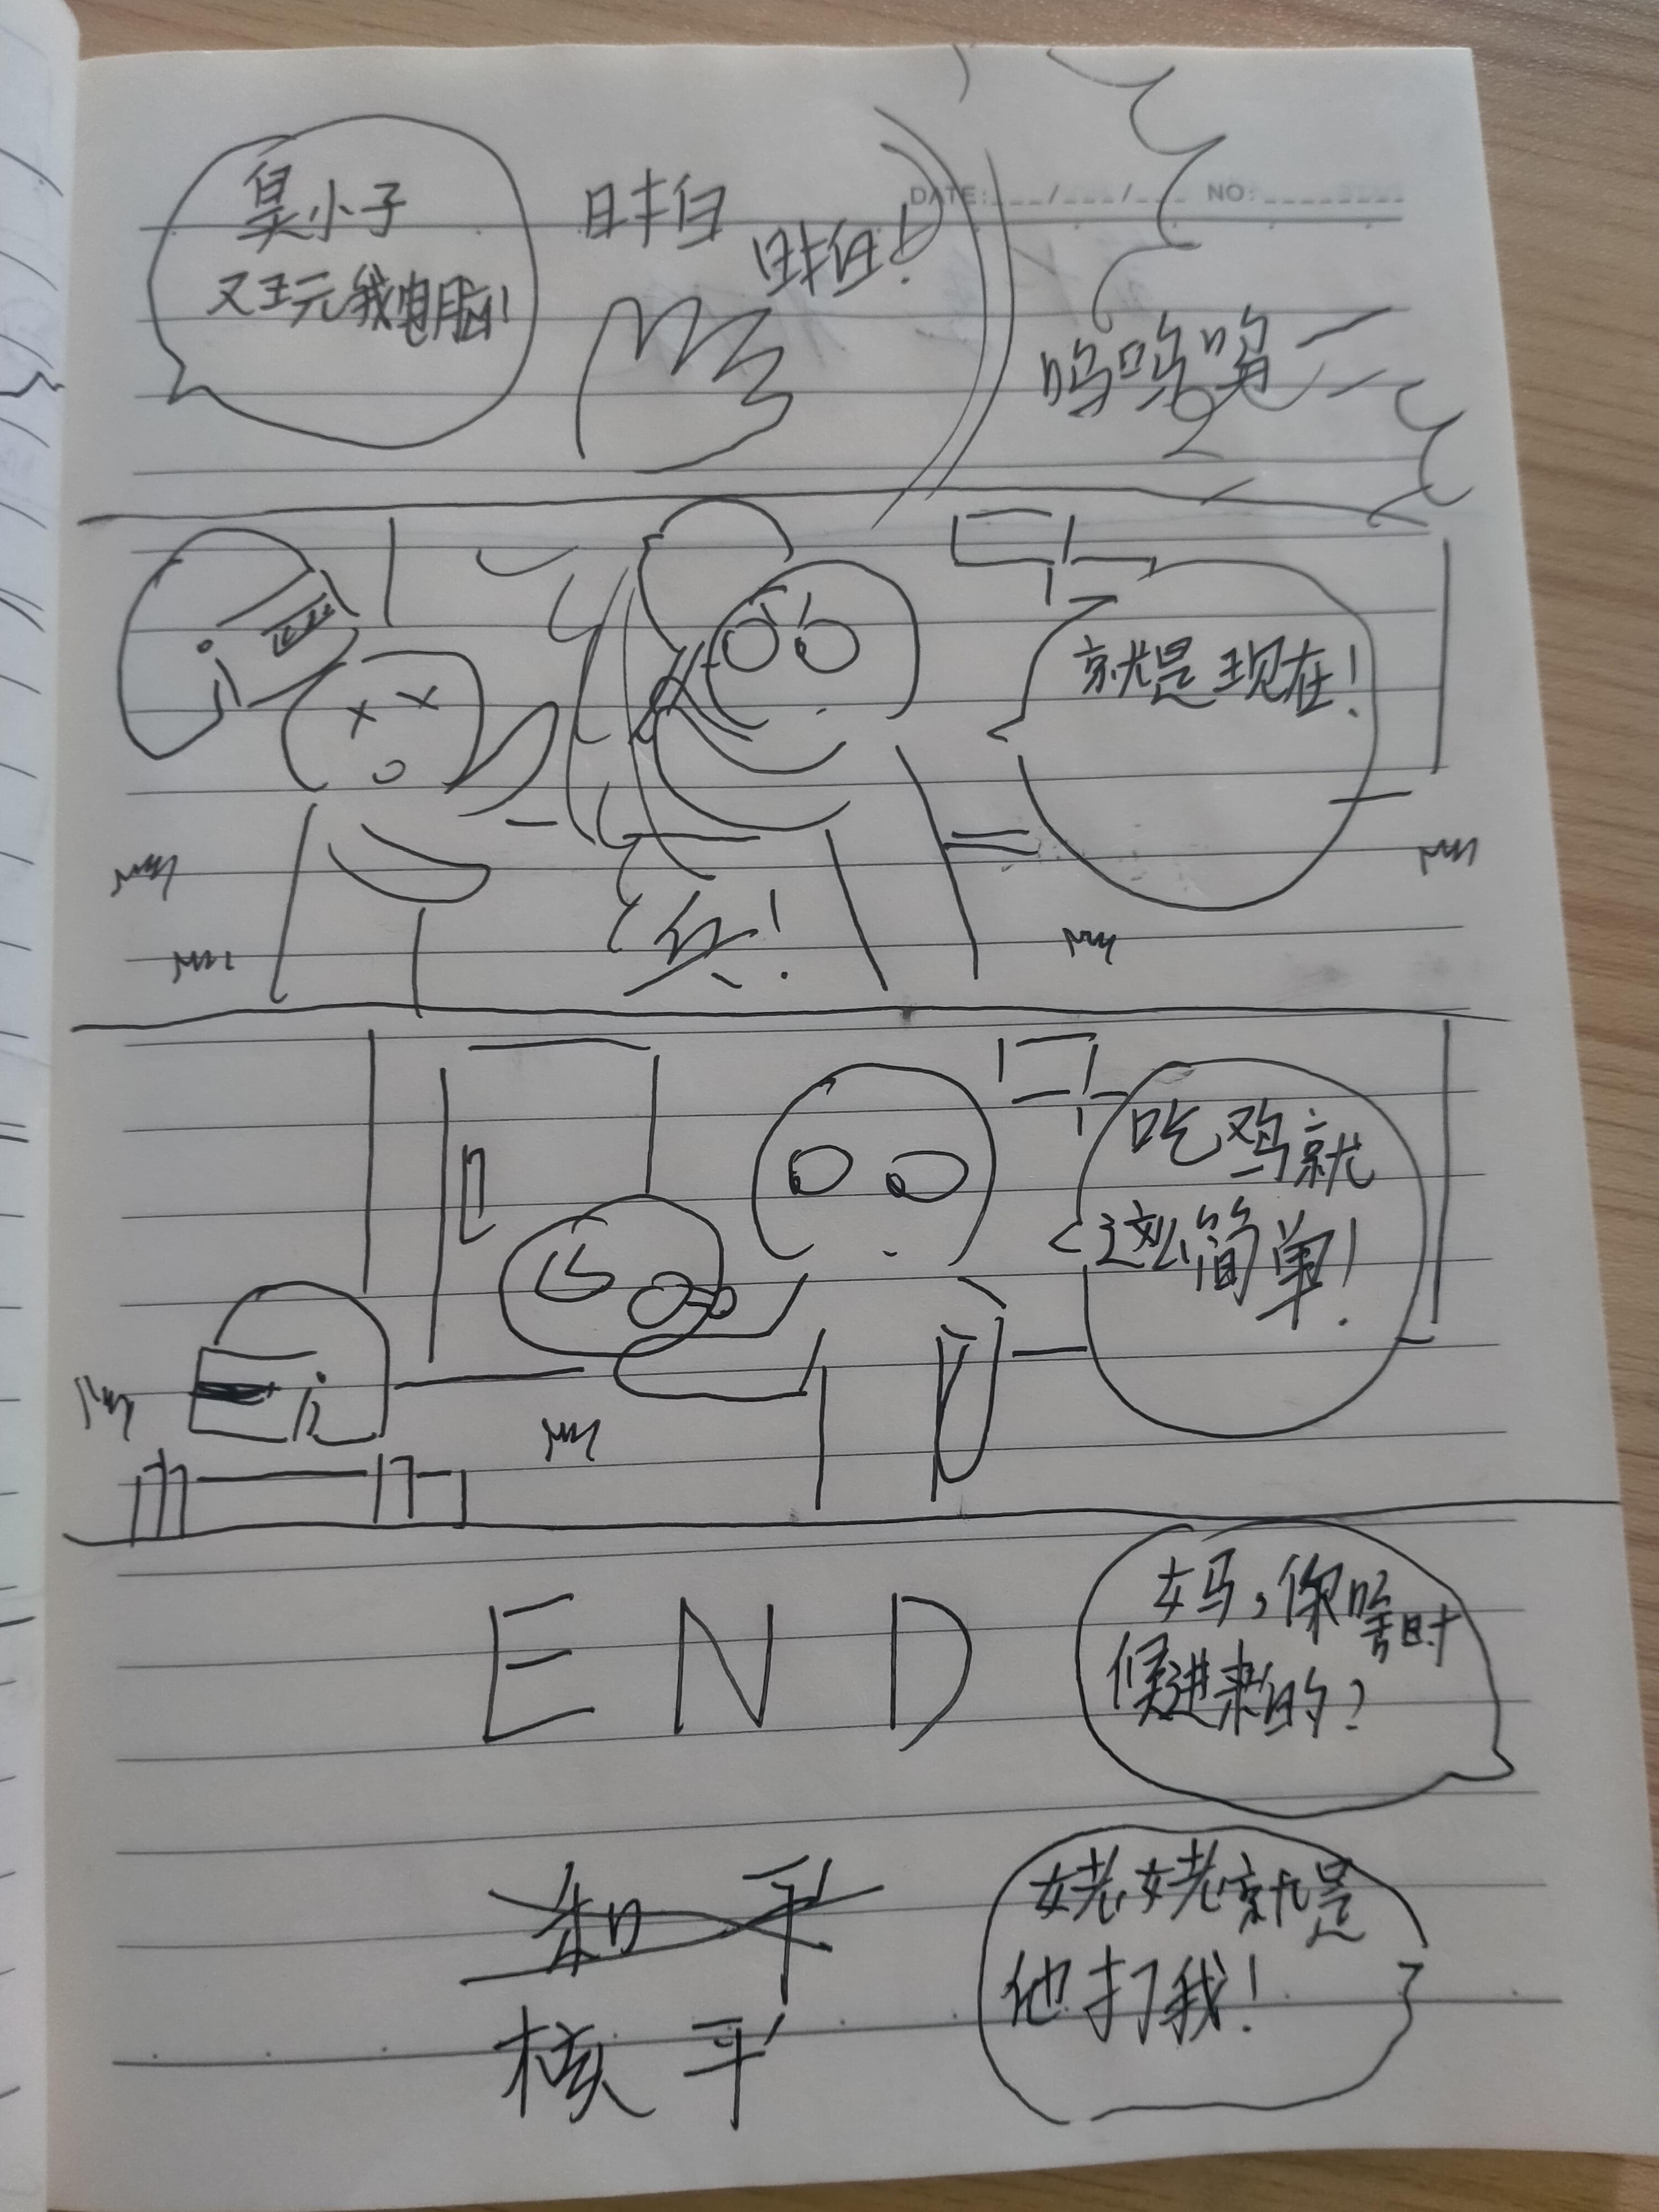 臭小子
又玩我电脑!
啪
啪!
DATE: / / NO:
呜呜呜
就是现在!
吃鸡就
这么简单!
END
妈,你啥时
候进来的?
和平
核平
姥姥就是
他打我!